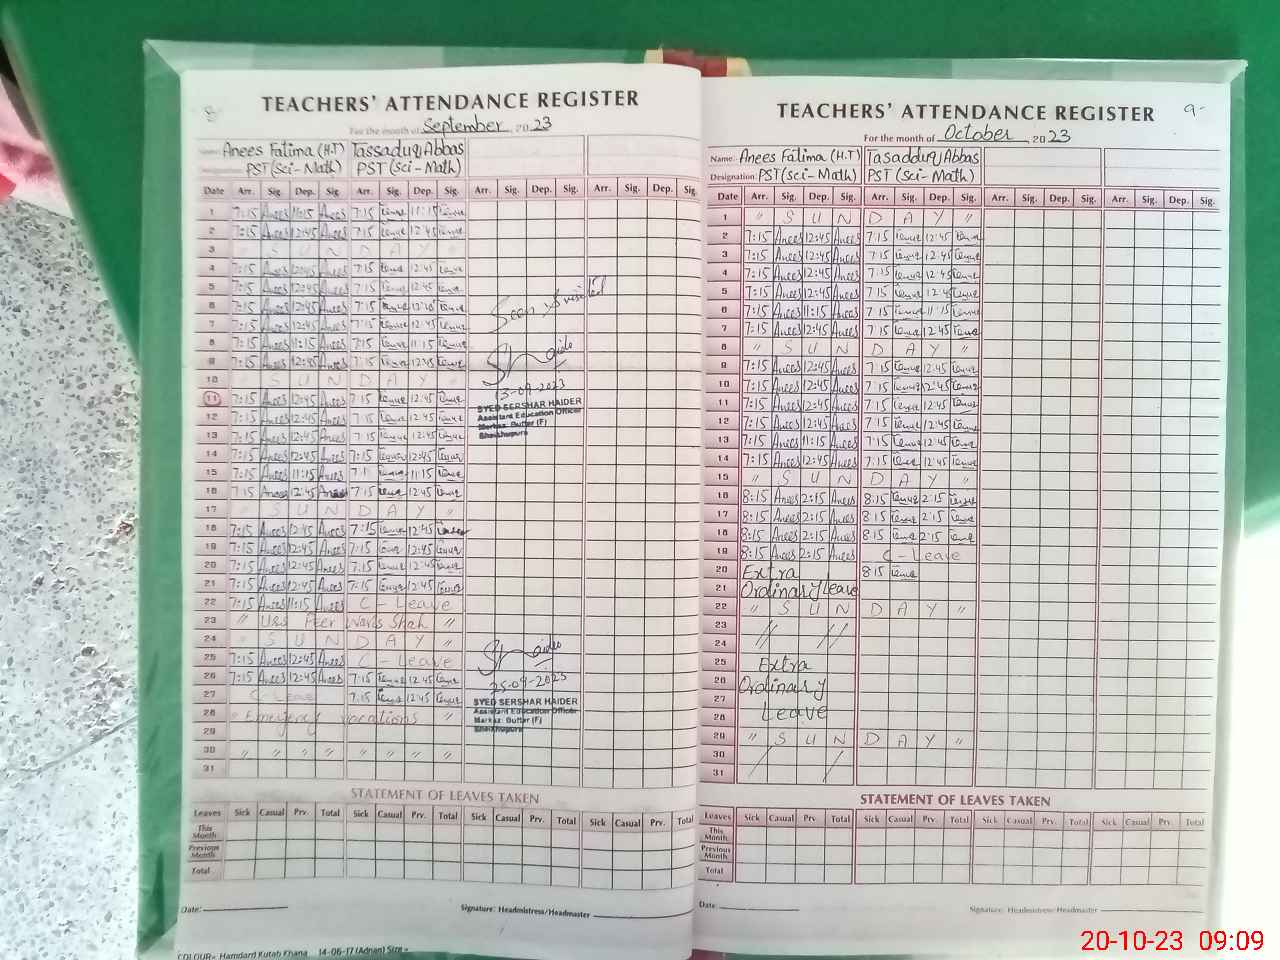 8-
TEACHERS' ATTENDANCE REGISTER
For the month of September 2023
Name: Anees Fatima (H.T) Tassaduq Abbas
Designation: PST (Sci-Math) PST (Sci-Math)
Date Arr. Sig. Dep. Sig. Arr. Sig. Dep. Sig. Arr. Sig. Dep. Sig. Arr. Sig. Dep. Sig.
1 7:15 Anees 11:15 Anees 7:15 11:15
2 7:15 Anees 12:45 Anees 7:15 12:45
3 " S U N D A Y "
4 7:15 Anees 12:45 Anees 7:15 12:45
5 7:15 Anees 12:45 Anees 7:15 12:45
6 7:15 Anees 12:45 Anees 7:15
7 7:15 Anees 12:45 Anees 7:15 12:45
8 7:15 Anees 11:15 Anees 7:15 11:15
9 7:15 Anees 12:45 Anees 7:15 12:45
10 " S U N D A Y "
11 7:15 Anees 12:45 Anees 7:15 12:45
12 7:15 Anees 12:45 Anees 7:15 12:45
13 7:15 Anees 12:45 Anees 7:15 12:45
14 7:15 Anees 12:45 Anees 7:15 12:45
15 7:15 Anees 11:15 Anees 7:15 11:15
16 7:15 Anees 12:45 Anees 7:15 12:45
17 " S U N D A Y "
18 7:15 Anees 12:45 Anees 7:15 12:45
19 7:15 Anees 12:45 Anees 7:15 12:45
20 7:15 Anees 12:45 Anees 7:15 12:45
21 7:15 Anees 12:45 Anees 7:15 12:45
22 7:15 Anees 11:15 Anees C - Leave
23 " Urs Peer Waris Shah "
24 " S U N D A Y "
25 7:15 Anees 12:45 Anees C - Leave
26 7:15 Anees 12:45 Anees 7:15 12:45
27 C-Leave 7:15 12:45
28 " Emergency vacations "
29
30 " " " " " " "
31
Seen & visited
13-09-2023
SYED SERSHAR HAIDER
Assistant Education Officer
Markaz: Buttar (F)
Sheikhupura
25-09-2023
SYED SERSHAR HAIDER
Assistant Education Officer
Markaz: Buttar (F)
Sheikhupura
STATEMENT OF LEAVES TAKEN
Leaves Sick Casual Prv. Total Sick Casual Prv. Total Sick Casual Prv. Total Sick Casual Prv. Total
This Month
Previous Month
Total
Date: Signature: Headmistress/Headmaster
COLOUR= Hamdard Kutab Khana 14-06-17 (Adnan) Size =
9-
TEACHERS' ATTENDANCE REGISTER
For the month of October 2023
Name: Anees Fatima (H.T) Tasadduq Abbas
Designation: PST (Sci-Math) PST (Sci-Math)
Date Arr. Sig. Dep. Sig. Arr. Sig. Dep. Sig. Arr. Sig. Dep. Sig. Arr. Sig. Dep. Sig.
1 " S U N D A Y "
2 7:15 Anees 12:45 Anees 7:15 12:45
3 7:15 Anees 12:45 Anees 7:15 12:45
4 7:15 Anees 12:45 Anees 7:15 12:45
5 7:15 Anees 12:45 Anees 7:15 12:45
6 7:15 Anees 11:15 Anees 7:15 11:15
7 7:15 Anees 12:45 Anees 7:15 12:45
8 " S U N D A Y "
9 7:15 Anees 12:45 Anees 7:15 12:45
10 7:15 Anees 12:45 Anees 7:15 12:45
11 7:15 Anees 12:45 Anees 7:15 12:45
12 7:15 Anees 12:45 Anees 7:15 12:45
13 7:15 Anees 11:15 Anees 7:15 12:45
14 7:15 Anees 12:45 Anees 7:15 12:45
15 " S U N D A Y "
16 8:15 Anees 2:15 Anees 8:15 2:15
17 8:15 Anees 2:15 Anees 8:15 2:15
18 8:15 Anees 2:15 Anees 8:15 2:15
19 8:15 Anees 2:15 Anees C - Leave
20 Extra 8:15
21 Ordinary Leave
22 " S U N D A Y "
23
24 " "
25 Extra
26 Ordinary
27
28 Leave
29 " S U N D A Y "
30
31
STATEMENT OF LEAVES TAKEN
Leaves Sick Casual Prv. Total Sick Casual Prv. Total Sick Casual Prv. Total Sick Casual Prv. Total
This Month
Previous Month
Total
Date: Signature: Headmistress/Headmaster
20-10-23 09:09